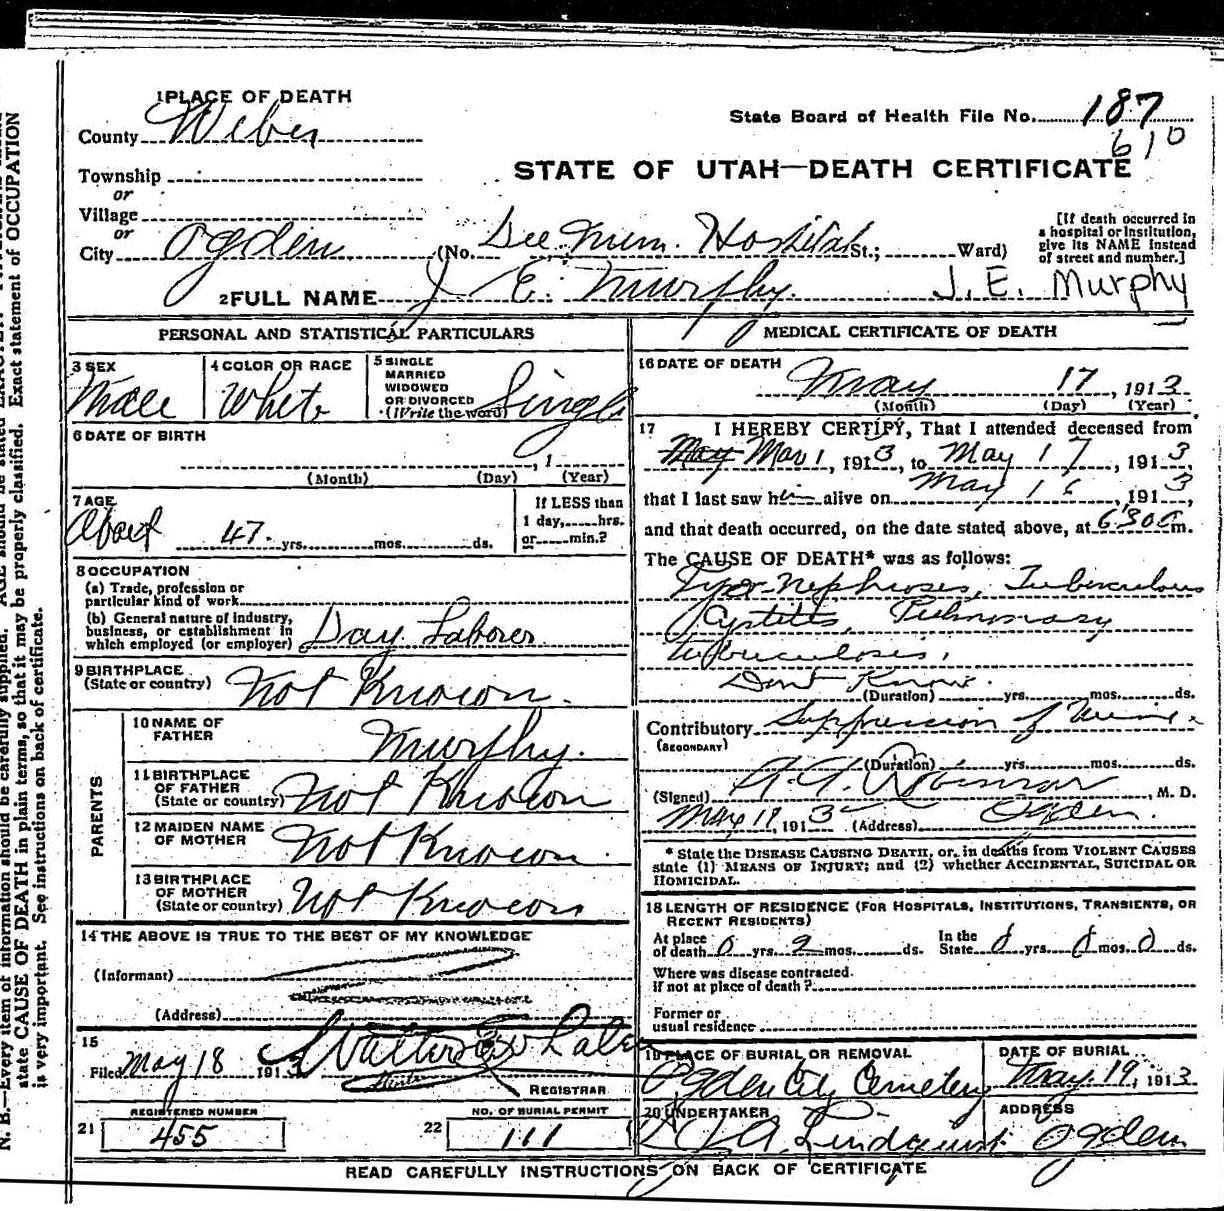 N. B.—Every item of information should be carefully supplied. AGE should be stated EXACTLY.
state CAUSE OF DEATH in plain terms, so that it may be properly classified. Exact statement of OCCUPATION
is very important. See instructions on back of certificate.
1 PLACE OF DEATH
County Weber
State Board of Health File No. 187
610
STATE OF UTAH—DEATH CERTIFICATE
Township
or
Village
or
City Ogden (No. Dee Mem. Hospital St.; Ward)
[If death occurred in
a hospital or institution,
give its NAME instead
of street and number.]
2 FULL NAME J E. Murphy. J. E. Murphy
PERSONAL AND STATISTICAL PARTICULARS
3 SEX
Male
4 COLOR OR RACE
White
5 SINGLE
MARRIED
WIDOWED
OR DIVORCED
(Write the word) Single
6 DATE OF BIRTH
, 1
(Month) (Day) (Year)
7 AGE
About 47 yrs. mos. ds.
If LESS than
1 day, hrs.
or min.?
8 OCCUPATION
(a) Trade, profession or
particular kind of work
(b) General nature of industry,
business, or establishment in
which employed (or employer) Day Laborer
9 BIRTHPLACE
(State or country) Not Known.
PARENTS
10 NAME OF
FATHER Murphy.
11 BIRTHPLACE
OF FATHER
(State or country) Not Known
12 MAIDEN NAME
OF MOTHER Not Known.
13 BIRTHPLACE
OF MOTHER
(State or country) Not Known
14 THE ABOVE IS TRUE TO THE BEST OF MY KNOWLEDGE
(Informant)
(Address)
15
Filed May 18 1913 Walter
REGISTRAR
REGISTERED NUMBER
21 455
NO. OF BURIAL PERMIT
22 111
MEDICAL CERTIFICATE OF DEATH
16 DATE OF DEATH
May 17, 1913
(Month) (Day) (Year)
17 I HEREBY CERTIFY, That I attended deceased from
May Mar 1, 1913, to May 17, 1913,
that I last saw him alive on May 16, 1913,
and that death occurred, on the date stated above, at 6:30 a m.
The CAUSE OF DEATH* was as follows:
Tuberculous
Cystitis, Pulmonary
tuberculosis,
Dont Know.
(Duration) yrs. mos. ds.
Contributory Suppression of Urine
(SECONDARY)
(Duration) yrs. mos. ds.
(Signed) Robinson, M. D.
May 19, 1913 (Address) Ogden.
* State the DISEASE CAUSING DEATH, or, in deaths from VIOLENT CAUSES
state (1) MEANS OF INJURY; and (2) whether ACCIDENTAL, SUICIDAL OR
HOMICIDAL.
18 LENGTH OF RESIDENCE (FOR HOSPITALS, INSTITUTIONS, TRANSIENTS, OR
RECENT RESIDENTS)
At place
of death 0 yrs. 2 mos. ds.
In the
State 0 yrs. 0 mos. 0 ds.
Where was disease contracted.
if not at place of death?
Former or
usual residence
19 PLACE OF BURIAL OR REMOVAL
Ogden City Cemetery
DATE OF BURIAL
May 19, 1913
20 UNDERTAKER
A. Lindquist
ADDRESS
Ogden
READ CAREFULLY INSTRUCTIONS ON BACK OF CERTIFICATE